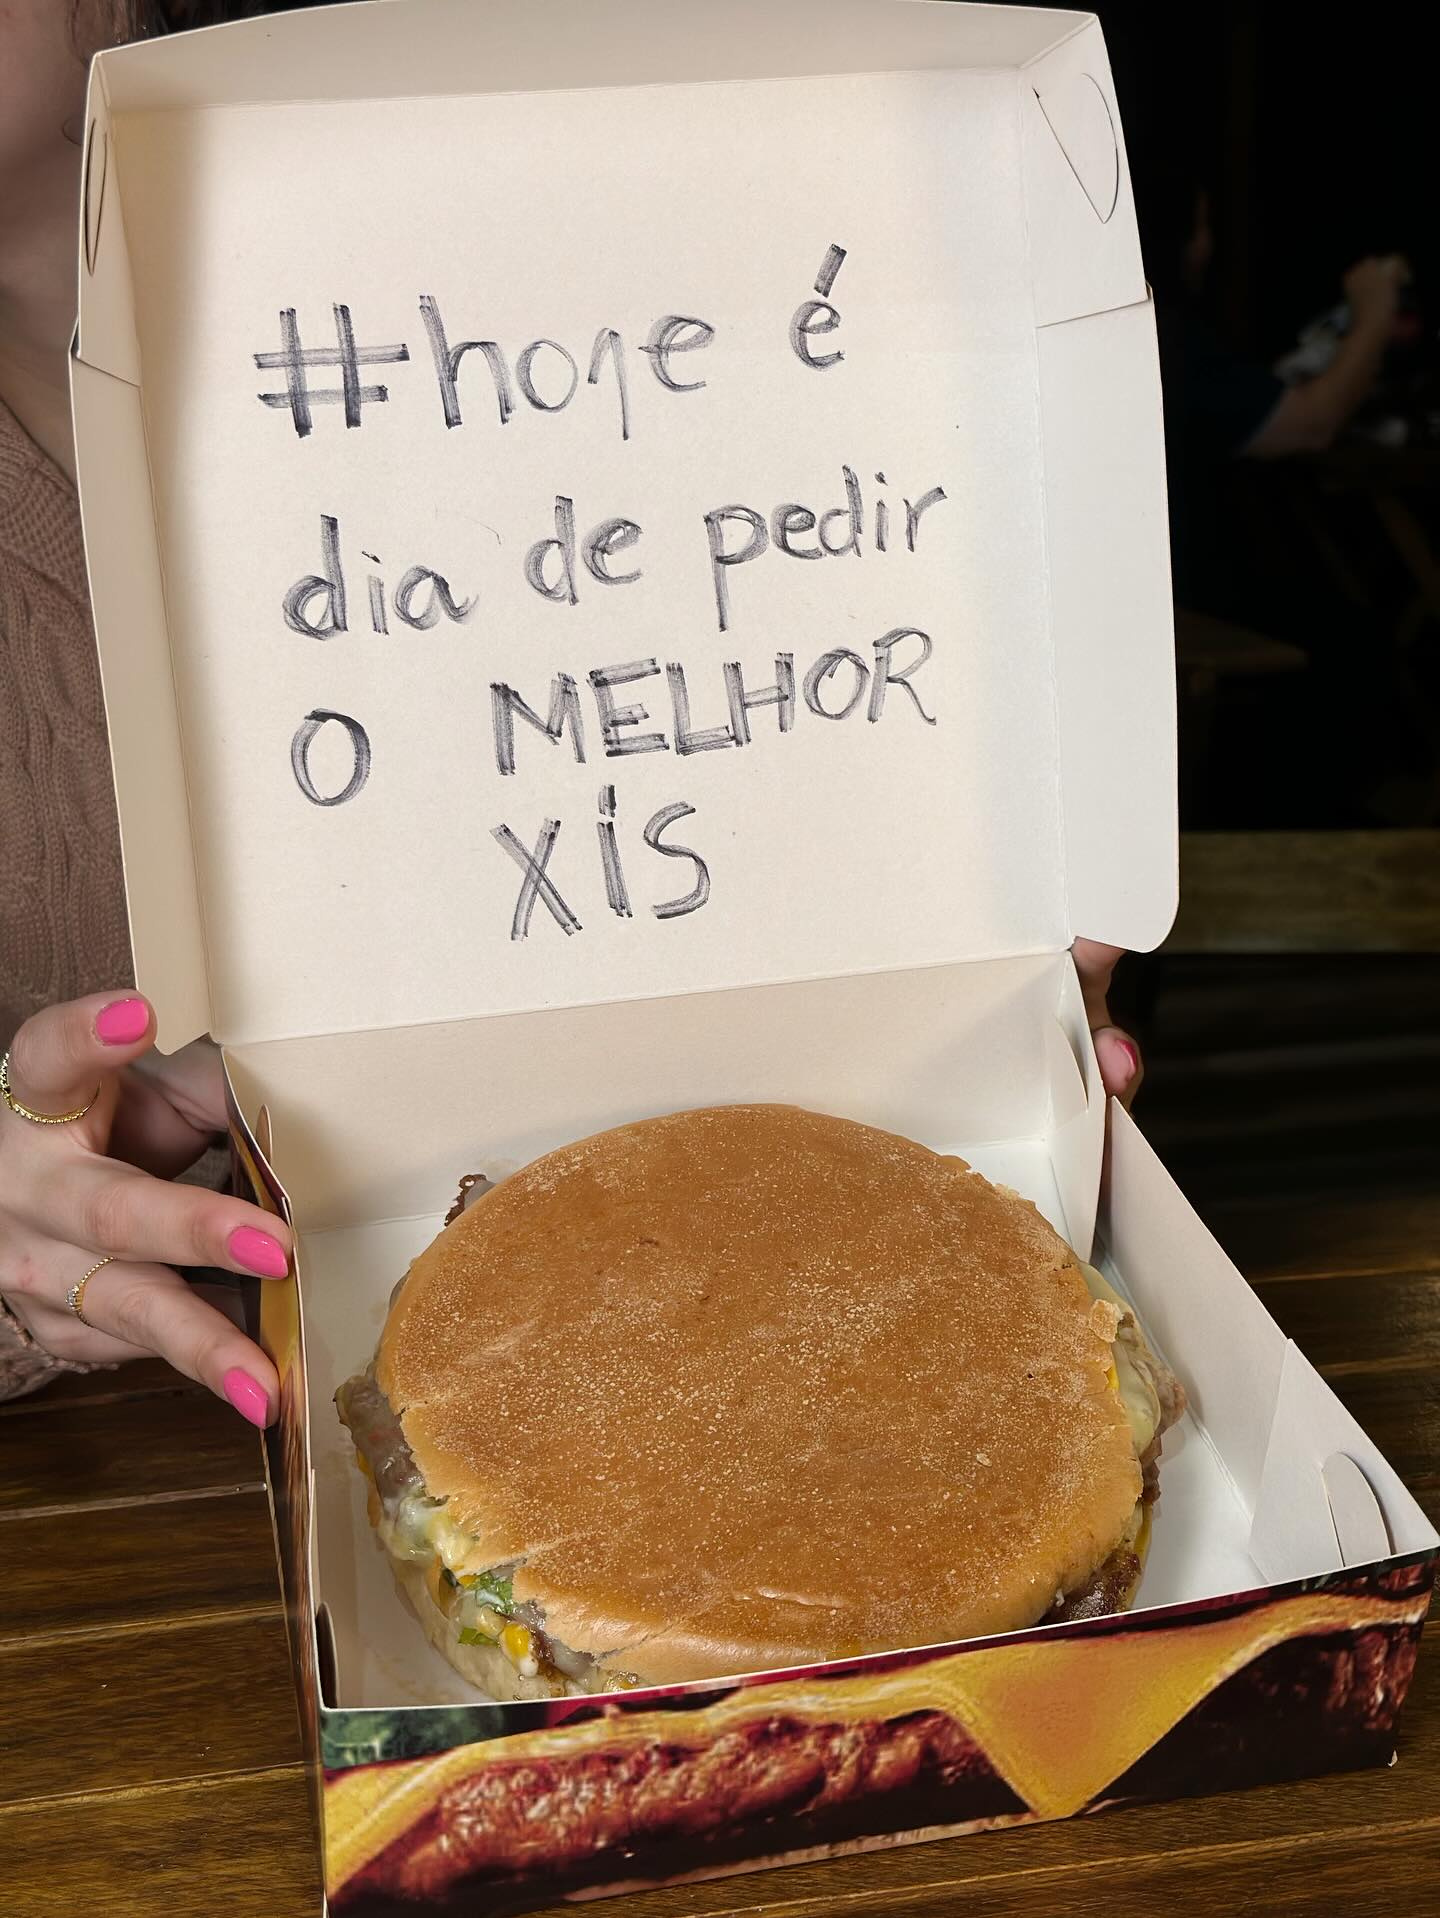 #hoje é
dia de pedir
O MELHOR
XÍS